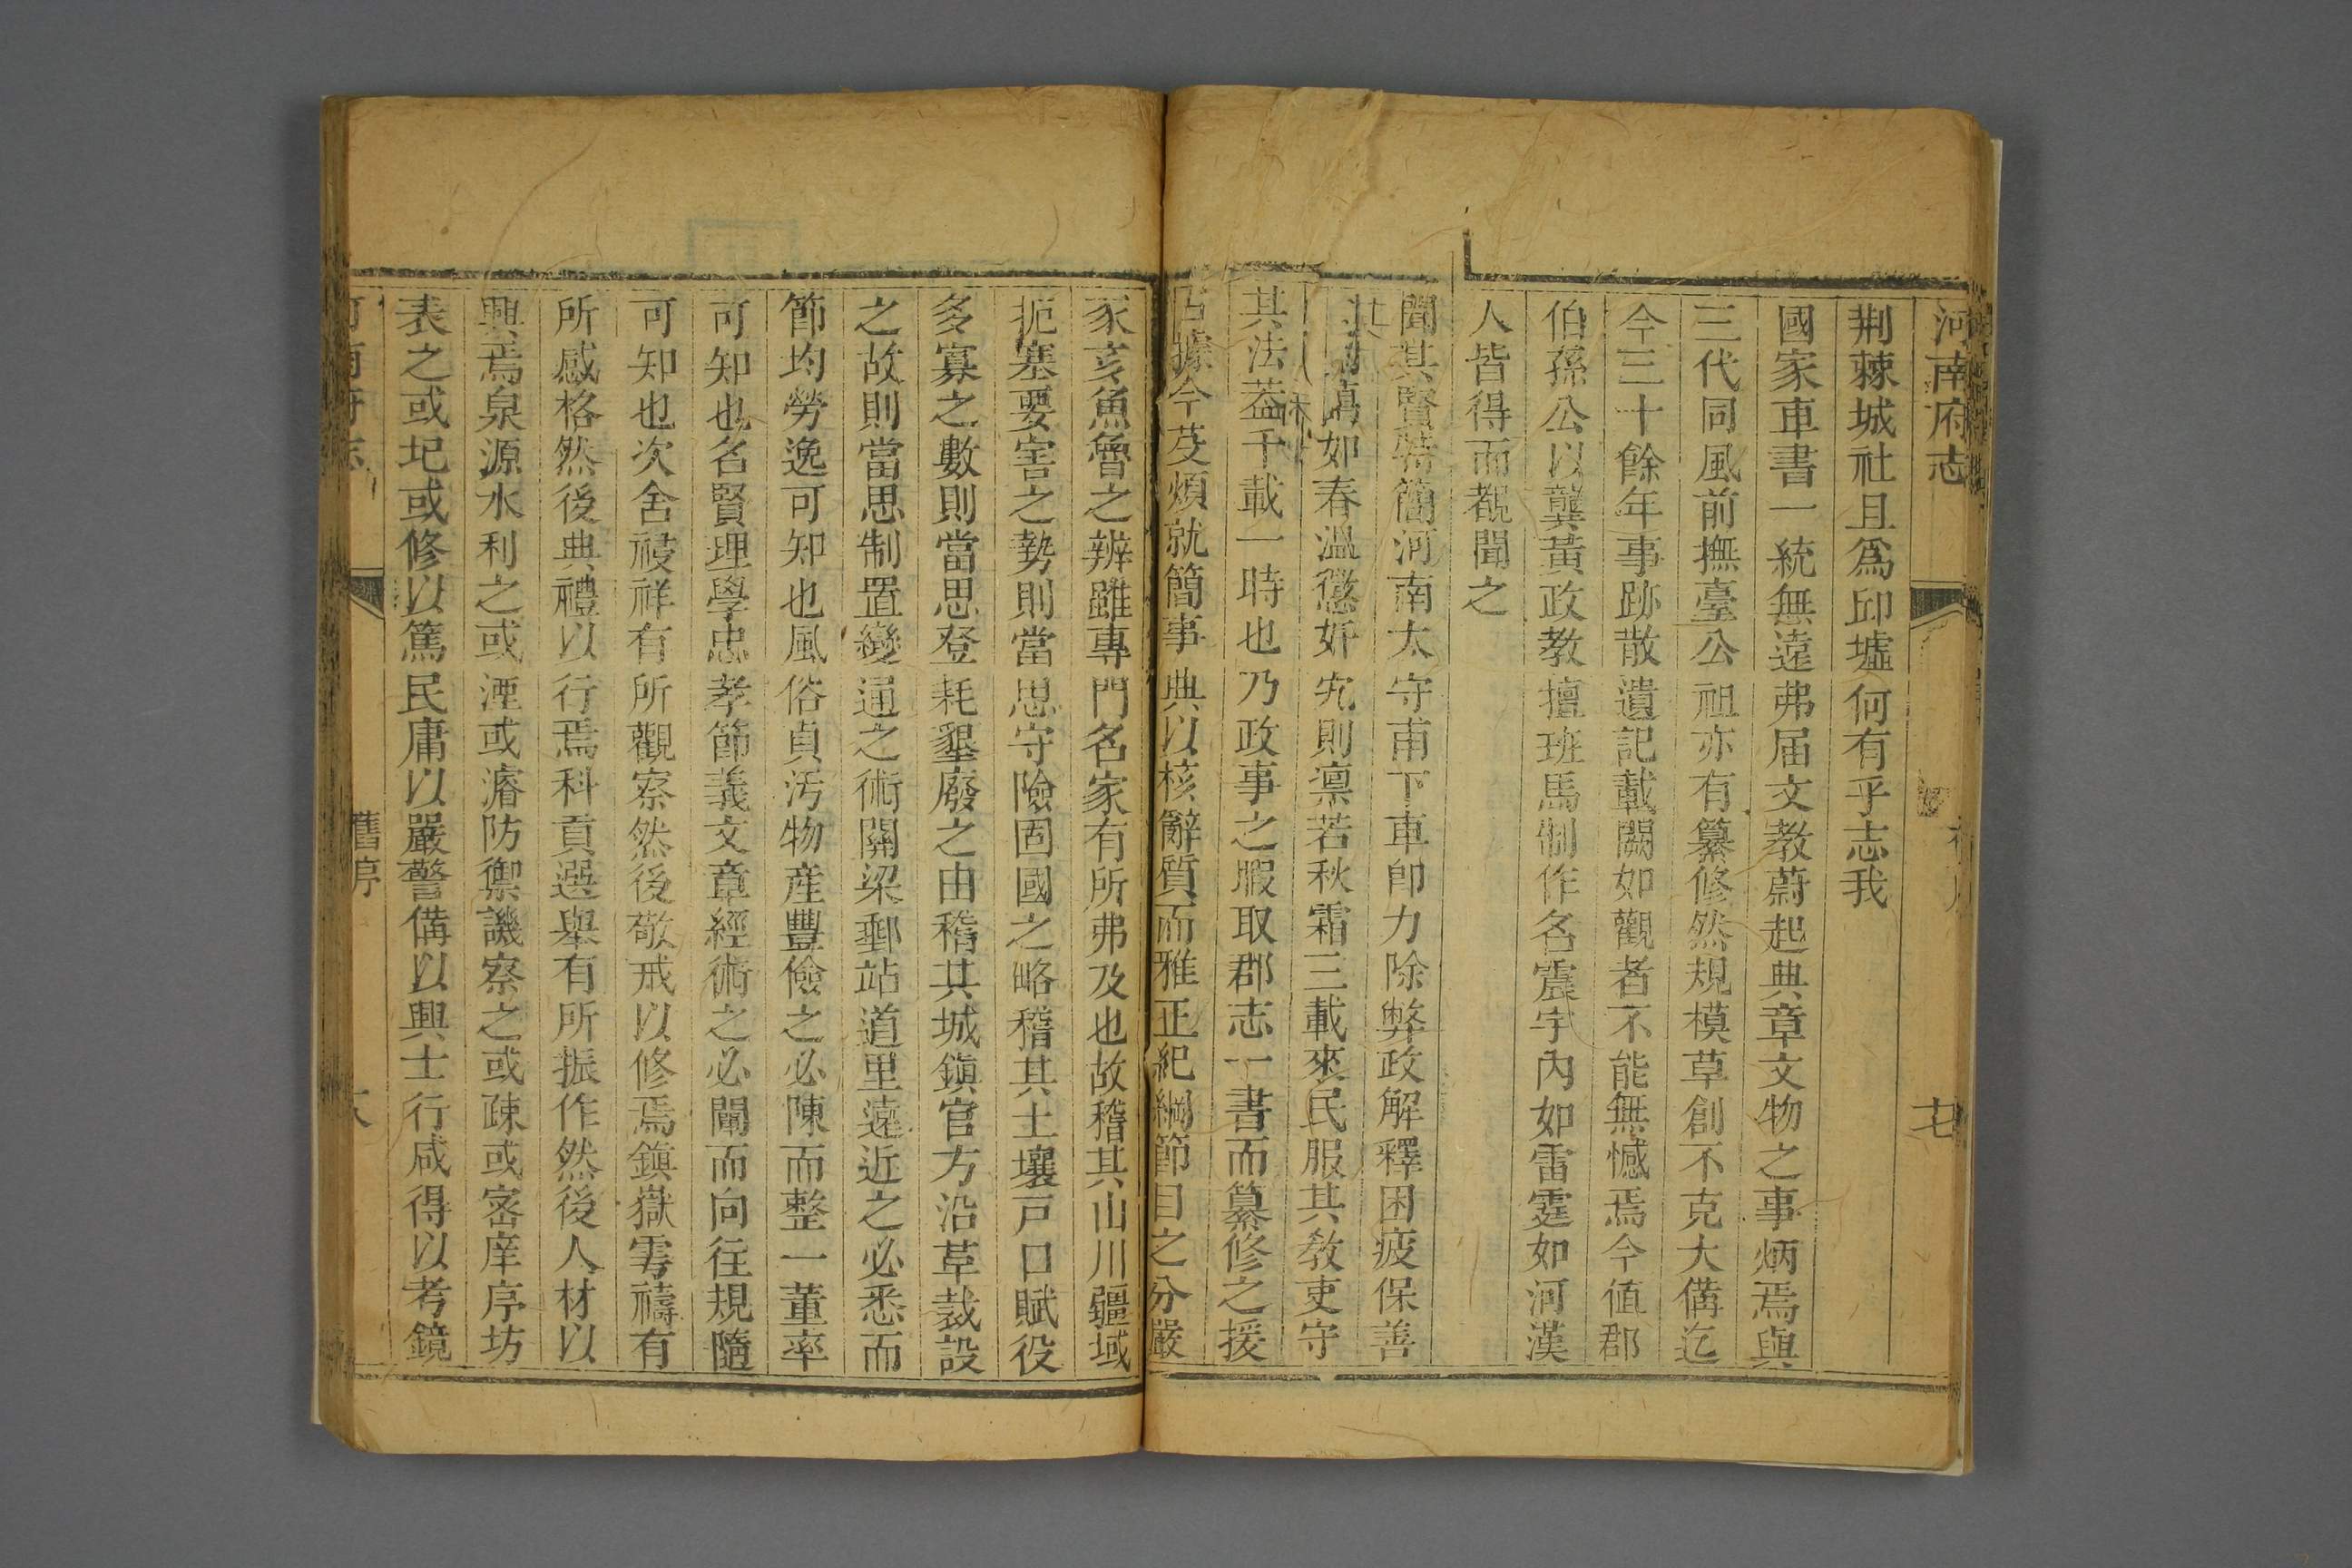 河南府志
荆棘城社且爲邱墟何有乎志我
國家車書一統無遠弗届文教蔚起典章文物之事炳焉與
三代同風前撫臺公祖亦有纂修然規模草創不克大備迄
今三十餘年事跡散遺記載闕如觀者不能無憾焉今值郡
伯孫公以龔黃政教擅班馬制作名震宇內如雷霆如河漢
人皆得而覩聞之
聞其賢特簡河南太守甫下車卽力除弊政解釋困疲保善
如春溫懲奸宄則凛若秋霜三載來民服其敎吏守
其法葢千載一時也乃政事之暇取郡志一書而纂修之援
古據今芟煩就簡事典以核辭質而雅正紀綱節目之分嚴
豕亥魚魯之辨雖專門名家有所弗及也故稽其山川疆域
扼塞要害之勢則當思守險固國之略稽其土壤戸口賦役
多寡之數則當思登耗墾廢之由稽其城鎭官方沿革裁設
之故則當思制置變通之術關梁郵站道里遠近之必悉而
節均勞逸可知也風俗貞汚物産豐儉之必陳而整一董率
可知也名賢理學忠孝節義文章經術之必闡而向往規隨
可知也次舍祲祥有所觀察然後敬戒以修焉鎭嶽雩禱有
所感格然後典禮以行焉科貢選舉有所振作然後人材以
興焉泉源水利之或湮或濬防禦譏察之或疎或密庠序坊
表之或圮或修以篤民庸以嚴警備以興士行咸得以考鏡
舊序